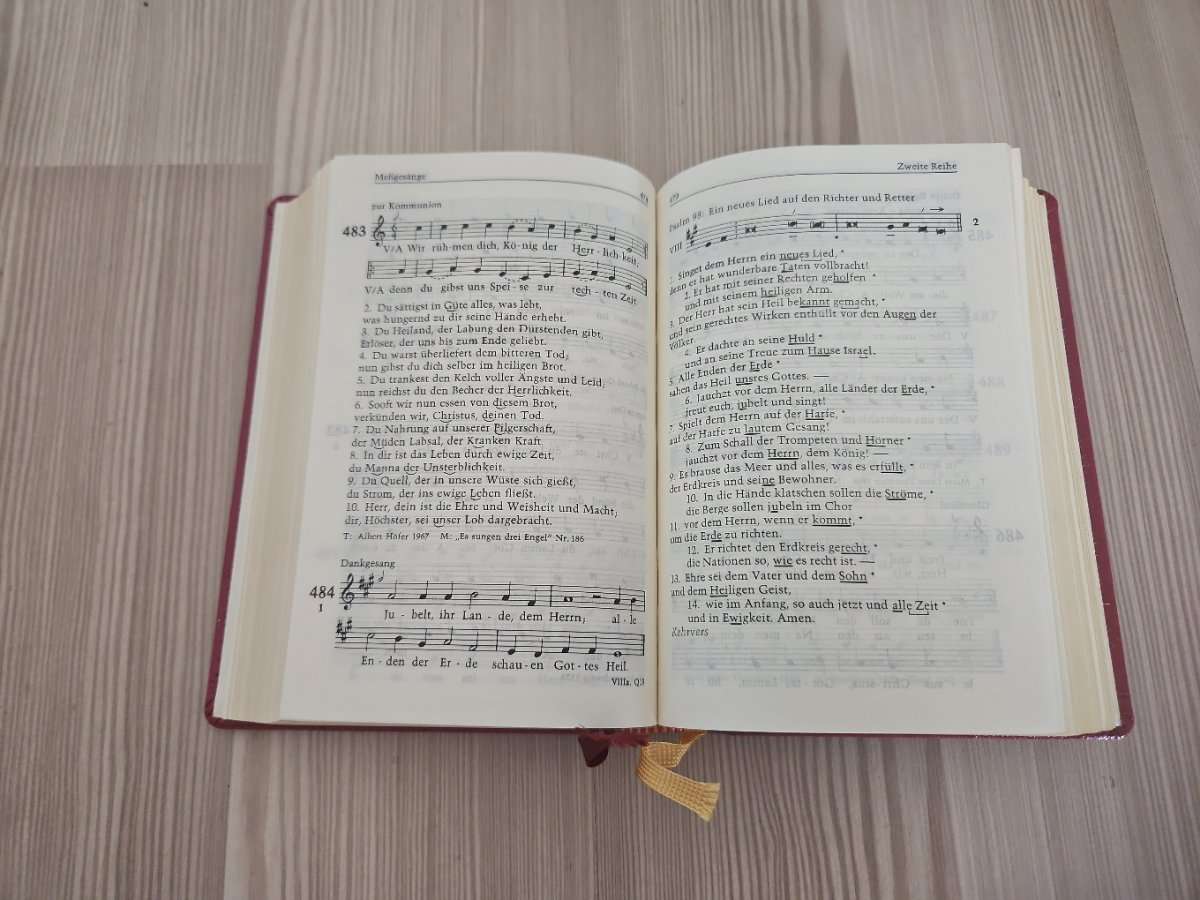 Meßgesänge
478
zur Kommunion
483
V/A Wir rüh-men dich, Kö-nig der Herr-lich-keit,
V/A denn du gibst uns Spei-se zur rech-ten Zeit.
2. Du sättigst in Güte alles, was lebt,
was hungernd zu dir seine Hände erhebt.
3. Du Heiland, der Labung den Dürstenden gibt,
Erlöser, der uns bis zum Ende geliebt.
4. Du warst überliefert dem bitteren Tod,
nun gibst du dich selber im heiligen Brot.
5. Du trankest den Kelch voller Ängste und Leid,
nun reichst du den Becher der Herrlichkeit.
6. Sooft wir nun essen von diesem Brot,
verkünden wir, Christus, deinen Tod.
7. Du Nahrung auf unserer Pilgerschaft,
der Müden Labsal, der Kranken Kraft.
8. In dir ist das Leben durch ewige Zeit,
du Manna der Unsterblichkeit.
9. Du Quell, der in unsere Wüste sich gießt,
du Strom, der ins ewige Leben fließt.
10. Herr, dein ist die Ehre und Weisheit und Macht;
dir, Höchster, sei unser Lob dargebracht.
T: Albert Höfer 1967 – M: „Es sungen drei Engel" Nr. 186
Dankgesang
484
1
Ju - belt, ihr Lan - de, dem Herrn; al - le
En - den der Er - de schau - en Got - tes Heil.
VIIIa, Q3
479
Zweite Reihe
Psalm 98: Ein neues Lied auf den Richter und Retter
VIII
2
1. Singet dem Herrn ein neues Lied, *
denn er hat wunderbare Taten vollbracht!
2. Er hat mit seiner Rechten geholfen *
und mit seinem heiligen Arm.
3. Der Herr hat sein Heil bekannt gemacht, *
und sein gerechtes Wirken enthüllt vor den Augen der
Völker.
4. Er dachte an seine Huld *
und an seine Treue zum Hause Israel.
5. Alle Enden der Erde *
sahen das Heil unsres Gottes. —
6. Jauchzt vor dem Herrn, alle Länder der Erde, *
freut euch, jubelt und singt!
7. Spielt dem Herrn auf der Harfe, *
auf der Harfe zu lautem Gesang!
8. Zum Schall der Trompeten und Hörner *
jauchzt vor dem Herrn, dem König! —
9. Es brause das Meer und alles, was es erfüllt, *
der Erdkreis und seine Bewohner.
10. In die Hände klatschen sollen die Ströme, *
die Berge sollen jubeln im Chor
11. vor dem Herrn, wenn er kommt, *
um die Erde zu richten.
12. Er richtet den Erdkreis gerecht, *
die Nationen so, wie es recht ist. —
13. Ehre sei dem Vater und dem Sohn *
und dem Heiligen Geist,
14. wie im Anfang, so auch jetzt und alle Zeit *
und in Ewigkeit. Amen.
Kehrvers